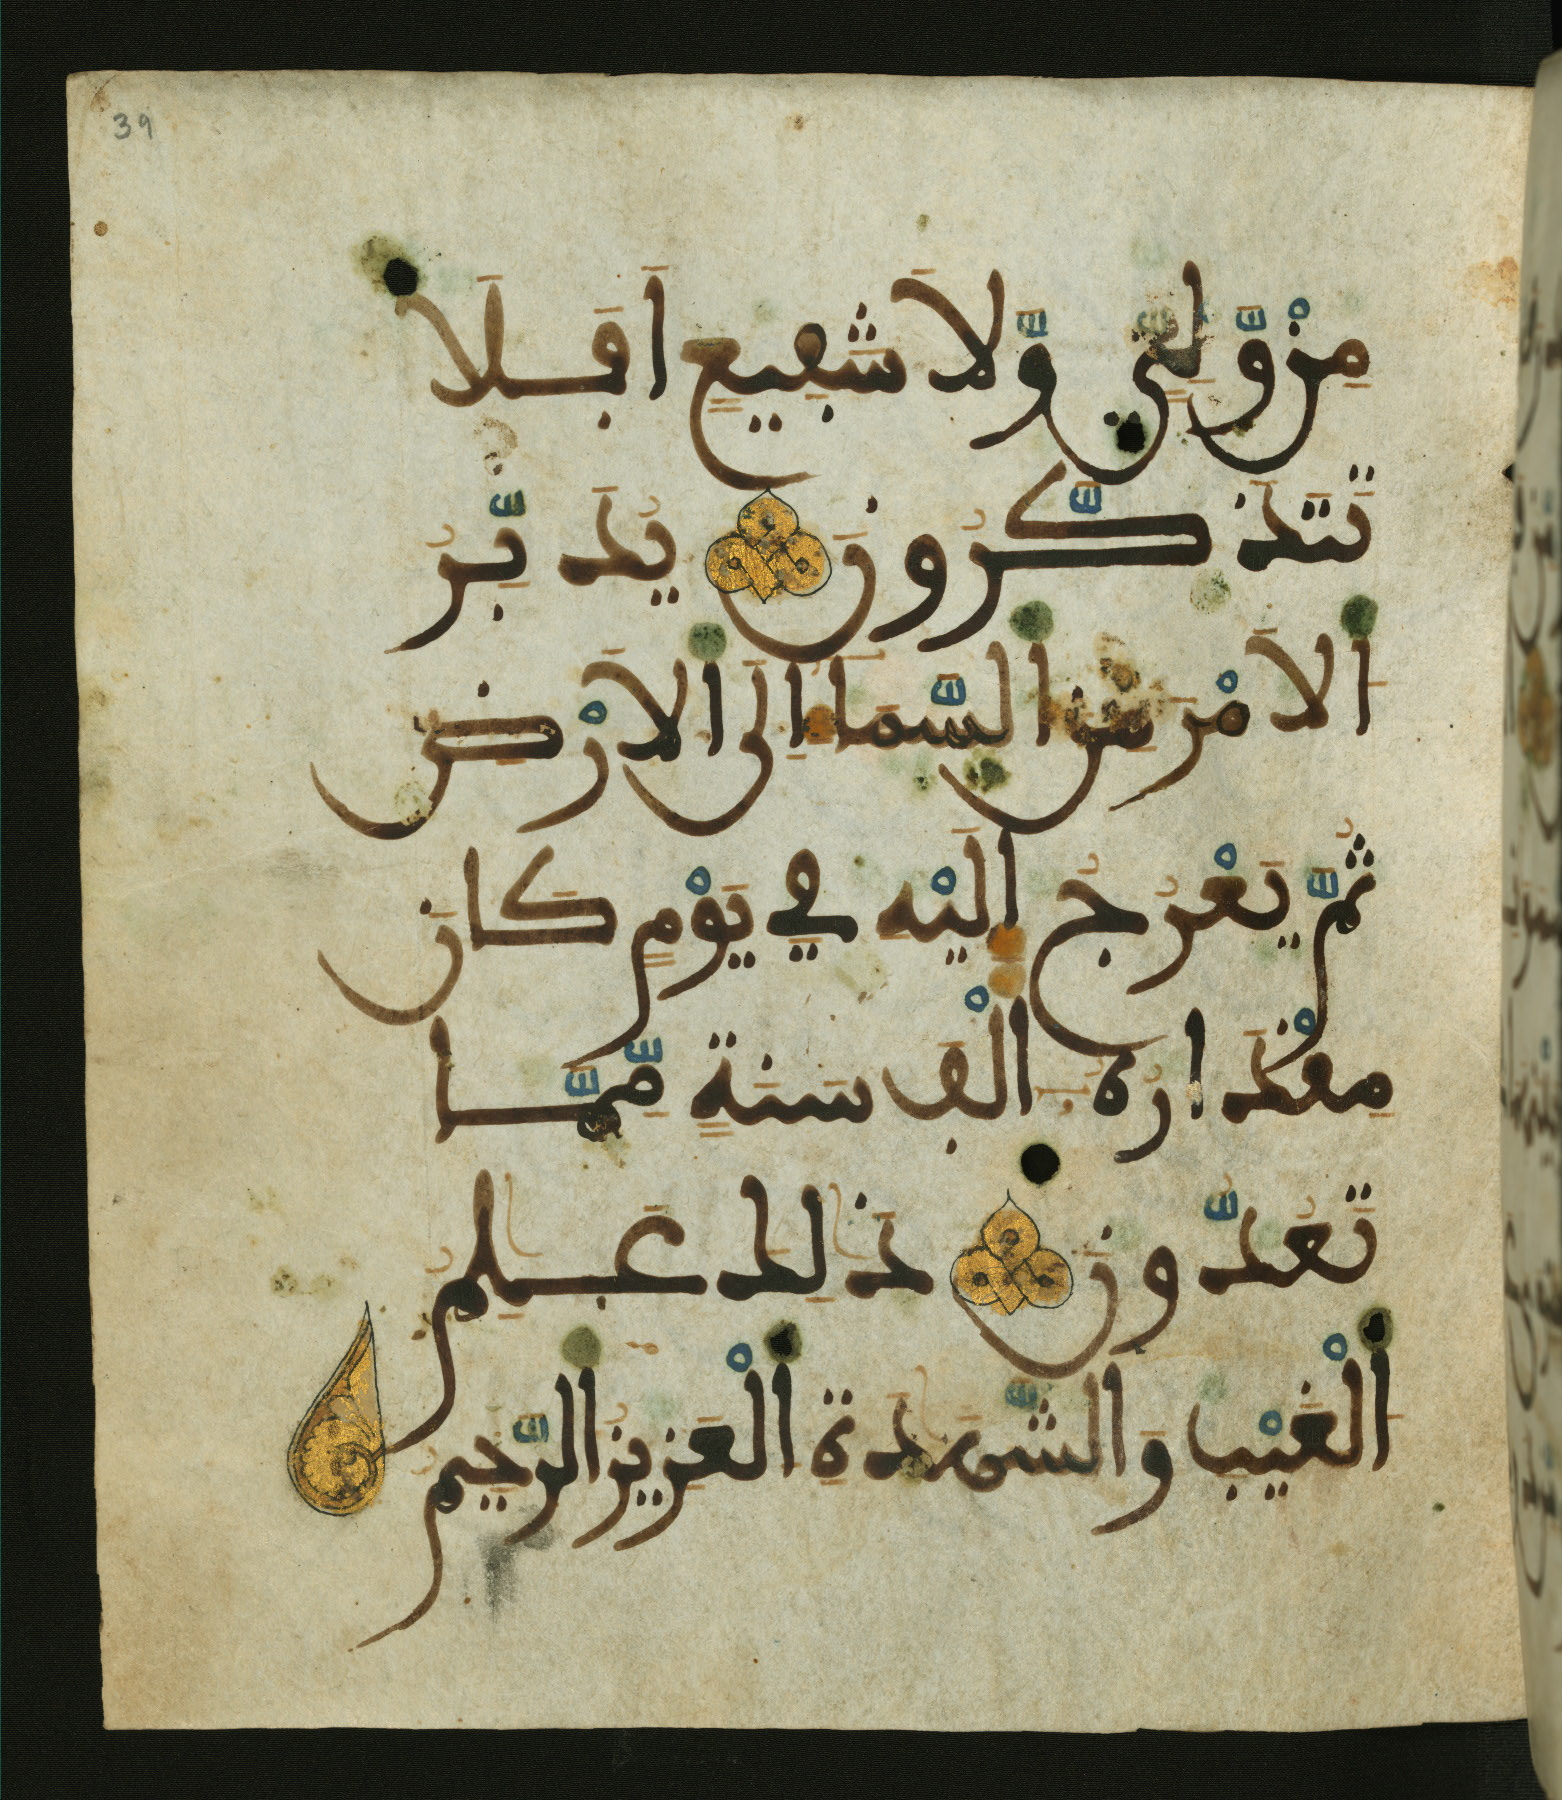 39
مِنْ وَّلِيٍّ وَّلَا شَفِيعٍ اَفَلَا
تَتَذَكَّرُونَ يُدَبِّرُ
الَامْرَ مِنَ السَّمَآءِ اِلَى الَارْضِ
ثُمَّ يَعْرُجُ إِلَيْهِ فِي يَوْمٍ كَانَ
مِقْدَارُهُ أَلْفَ سَنَةٍ مِّمَّا
تَعُدُّونَ ذَٰلِكَ عَٰلِمُ
الْغَيْبِ وَالشَّهَٰدَةِ الْعَزِيزُ الرَّحِيمُ